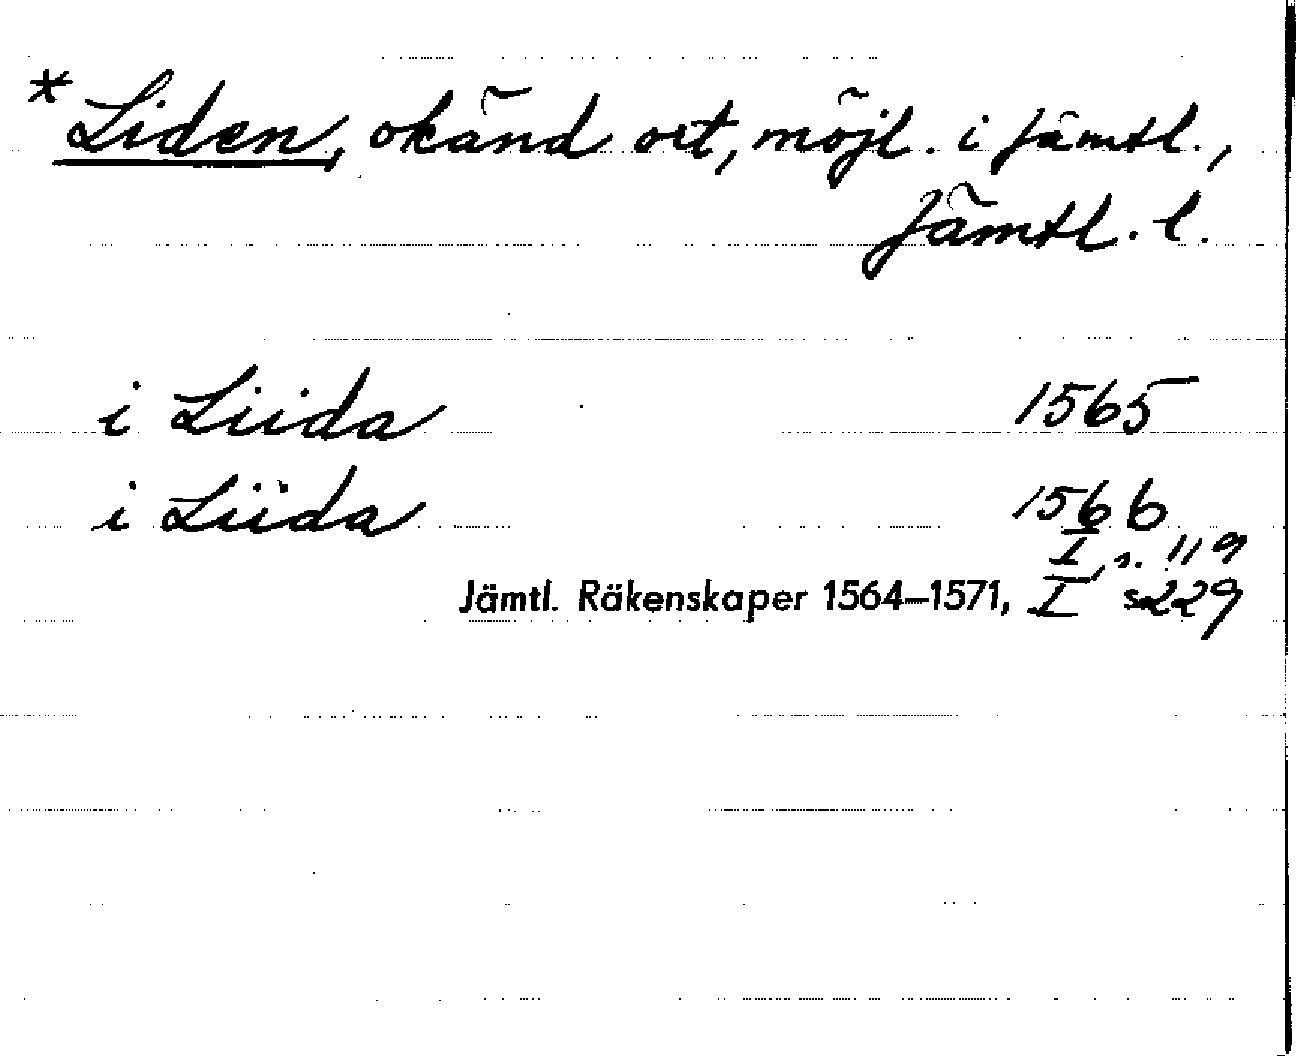 *Liden, okänd ort, möjl. i Jämtl.,
Jämtl. l.
i Liida 1565
i Liida 1566
I, s. 119
Jämtl. Räkenskaper 1564–1571, I s 229